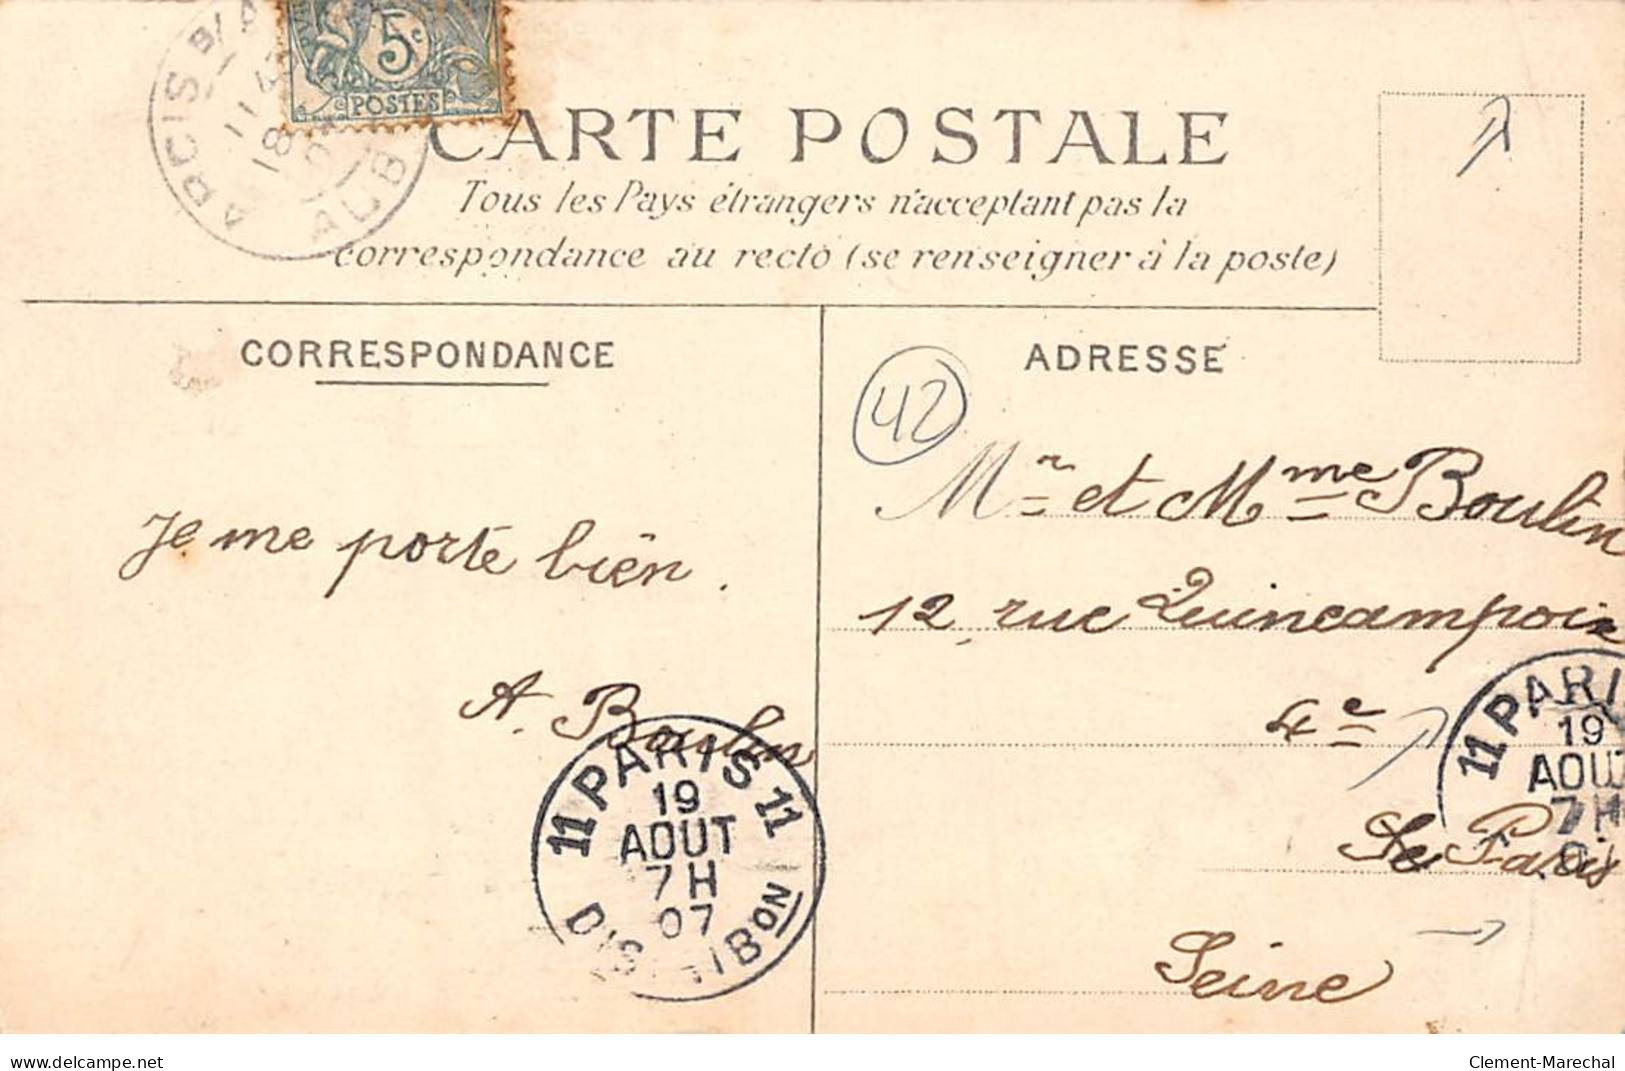 ARCIS
AUB
11 4
18
5c
POSTES
CARTE POSTALE
Tous les Pays étrangers n'acceptent pas la
correspondance au recto (se renseigner à la poste)
CORRESPONDANCE
ADRESSE
42
Mr et Mme Boulin
12, rue Quincampoix
4e
Le Paris
Seine
Je me porte bien.
A. Boulin
11 PARIS 11
19
AOUT
7H
07
DISTRIBON
11 PARI
19
AOUT
7H
delcampe.net
Clement-Marechal